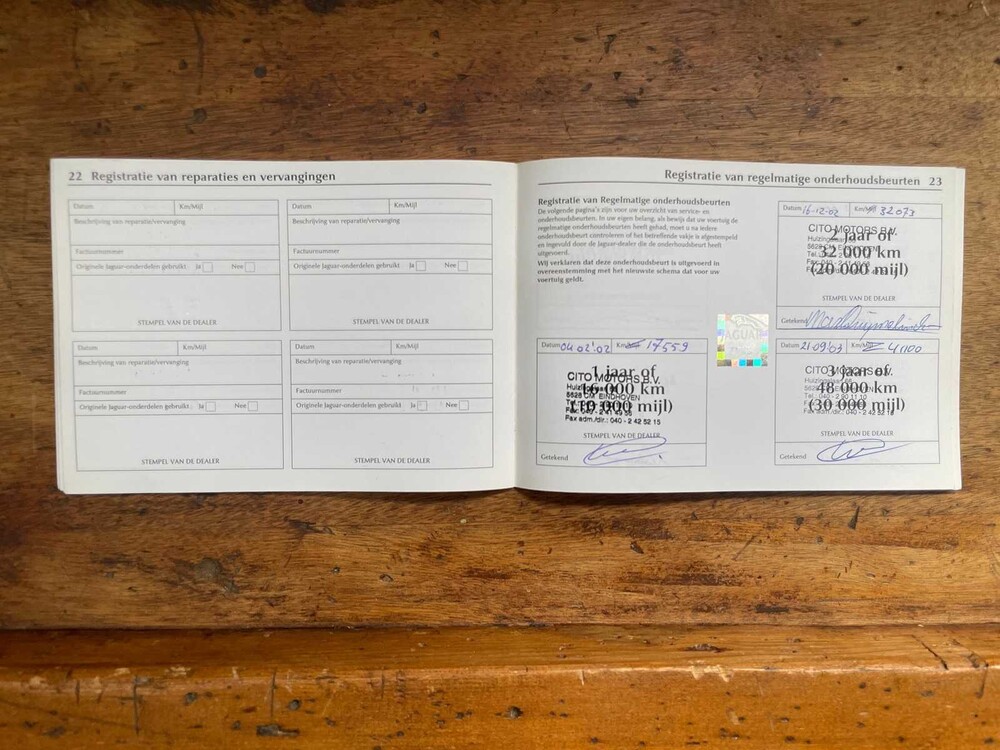 22 Registratie van reparaties en vervangingen
Datum Km/Mijl
Beschrijving van reparatie/vervanging
Factuurnummer
Originele Jaguar-onderdelen gebruikt Ja Nee
STEMPEL VAN DE DEALER
Datum Km/Mijl
Beschrijving van reparatie/vervanging
Factuurnummer
Originele Jaguar-onderdelen gebruikt Ja Nee
STEMPEL VAN DE DEALER
Datum Km/Mijl
Beschrijving van reparatie/vervanging
Factuurnummer
Originele Jaguar-onderdelen gebruikt Ja Nee
STEMPEL VAN DE DEALER
Datum Km/Mijl
Beschrijving van reparatie/vervanging
Factuurnummer
Originele Jaguar-onderdelen gebruikt Ja Nee
STEMPEL VAN DE DEALER
Registratie van regelmatige onderhoudsbeurten 23
Registratie van Regelmatige Onderhoudsbeurten
De volgende pagina's zijn voor uw overzicht van service- en
onderhoudsbeurten. In uw eigen belang, als bewijs dat uw voertuig de
regelmatige onderhoudsbeurten heeft gehad, moet u na iedere
onderhoudsbeurt controleren of het betreffende vakje is afgestempeld
en ingevuld door de Jaguar-dealer die de onderhoudsbeurt heeft
uitgevoerd.
Wij verklaren dat deze onderhoudsbeurt is uitgevoerd in
overeenstemming met het nieuwste schema dat voor uw
voertuig geldt.
Datum 04 02'02 Km 17559
CITO MOTORS B.V.
1 jaar of
16 000 km
5628 CM EINDHOVEN
(10 000 mijl)
Fax adm./dir.: 040 - 2 42 52 15
STEMPEL VAN DE DEALER
Getekend
JAGUAR
Datum 16-12-02 Km/Mijl 32073
CITO MOTORS B.V.
2 jaar of
32 000 km
(20 000 mijl)
STEMPEL VAN DE DEALER
Getekend
Datum 21 09'03 Km/Mijl 41100
CITO MOTORS B.V.
3 jaar of
48 000 km
(30 000 mijl)
STEMPEL VAN DE DEALER
Getekend